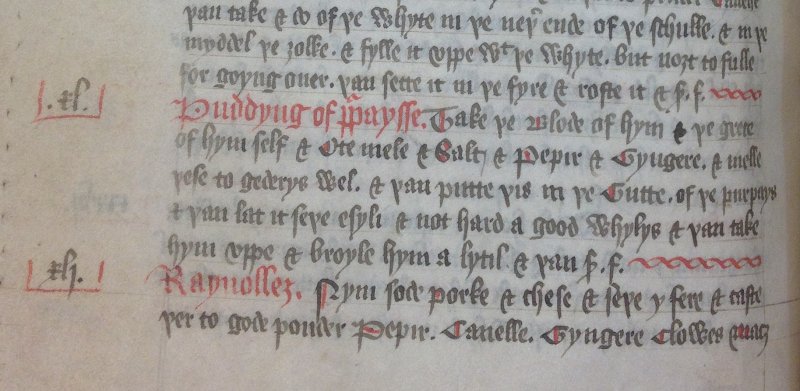 þan take & do of þe whyte in þe neyþ ende of þe schulle. & in þe
myddel þe ȝolke. & fylle it vppe wt þe whyte. but noȝt to fulle
for goyng ouer. þan sette it in þe fyre & roste it & s. f.
.xl. Puddyng of p̱paysse. Take þe Blode of hym & þe grece
of hym self & Ote mele & Salt & Pepir & Gyngere. & melle
þese to gederys wel. & þan putte þis in þe Gutte. of þe purpays
& þan lat it seþe esyli & not hard a good whylys & þan take
hym vppe & broyle hym a lytil & þan s. f.
.xlj. Raynolleȝ. Nym sode porke & chese & seþe y fere & caste
þer to gode pouder Pepir. Canelle. Gyngere Clowes